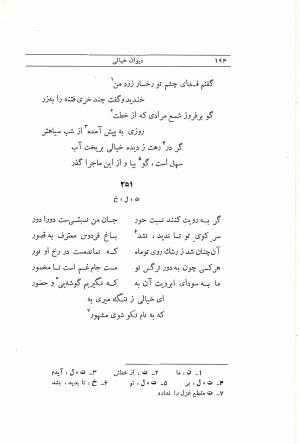 ۱۹۴ دیوان خیالی
گفتم فدای چشم تو رخسار زرد من۱
خندید و گفت چند خری فتنه را به زر
گو برفروز شمع مرادی که از خطت۲
روزی به پیش آمده۳ از شب سیاهش
گر در۴ رهت ز دیده خیالی بریخت آب
سهل است، گو۵ بیا و از این ماجرا گذر
۲۵۱
ت، ل، خ
گر به رویت کنند نسبت حور جان من نسبتی‌ست دورادور
سر کوی تو تا ندید، نشد۶ باغ فردوس معترف به قصور
آن‌چنان شد ز رشك روی تو ماه که نمانده‌ست در رخ او نور
هر کسی چون به دور نرگس تو مست جام غم است تا مخمور
ما به سودای ابرویت آن به که نگیریم گوشه‌یی و حضور
ای خیالی ز ننگ می به
که به نام نکو شوی مشهور۷
۱- ن، ما ۲- ت، از خطش ۳- ت، ل، آیدم
۴- ت، ل، بی ۵- ت، ل، تو ۶- خ، تا بدید، بشد
۷- ت مقطع غزل را ندارد